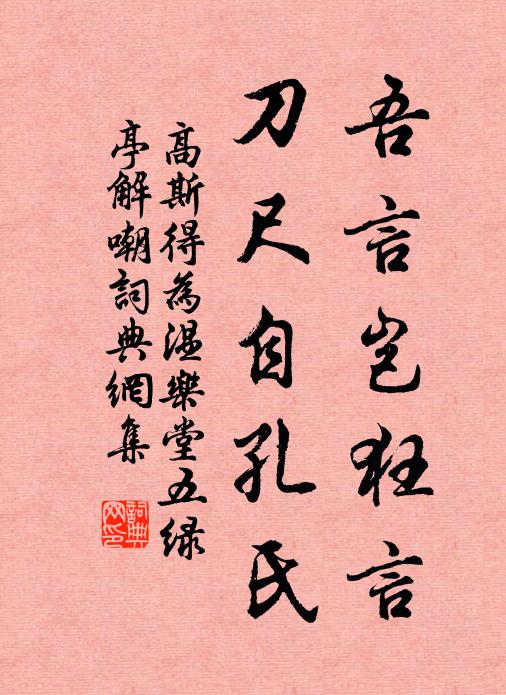 吾言岂狂言
刀尺自孔氏
高斯得為温樂堂五緑
亭解嘲詞典網集
詞典網印